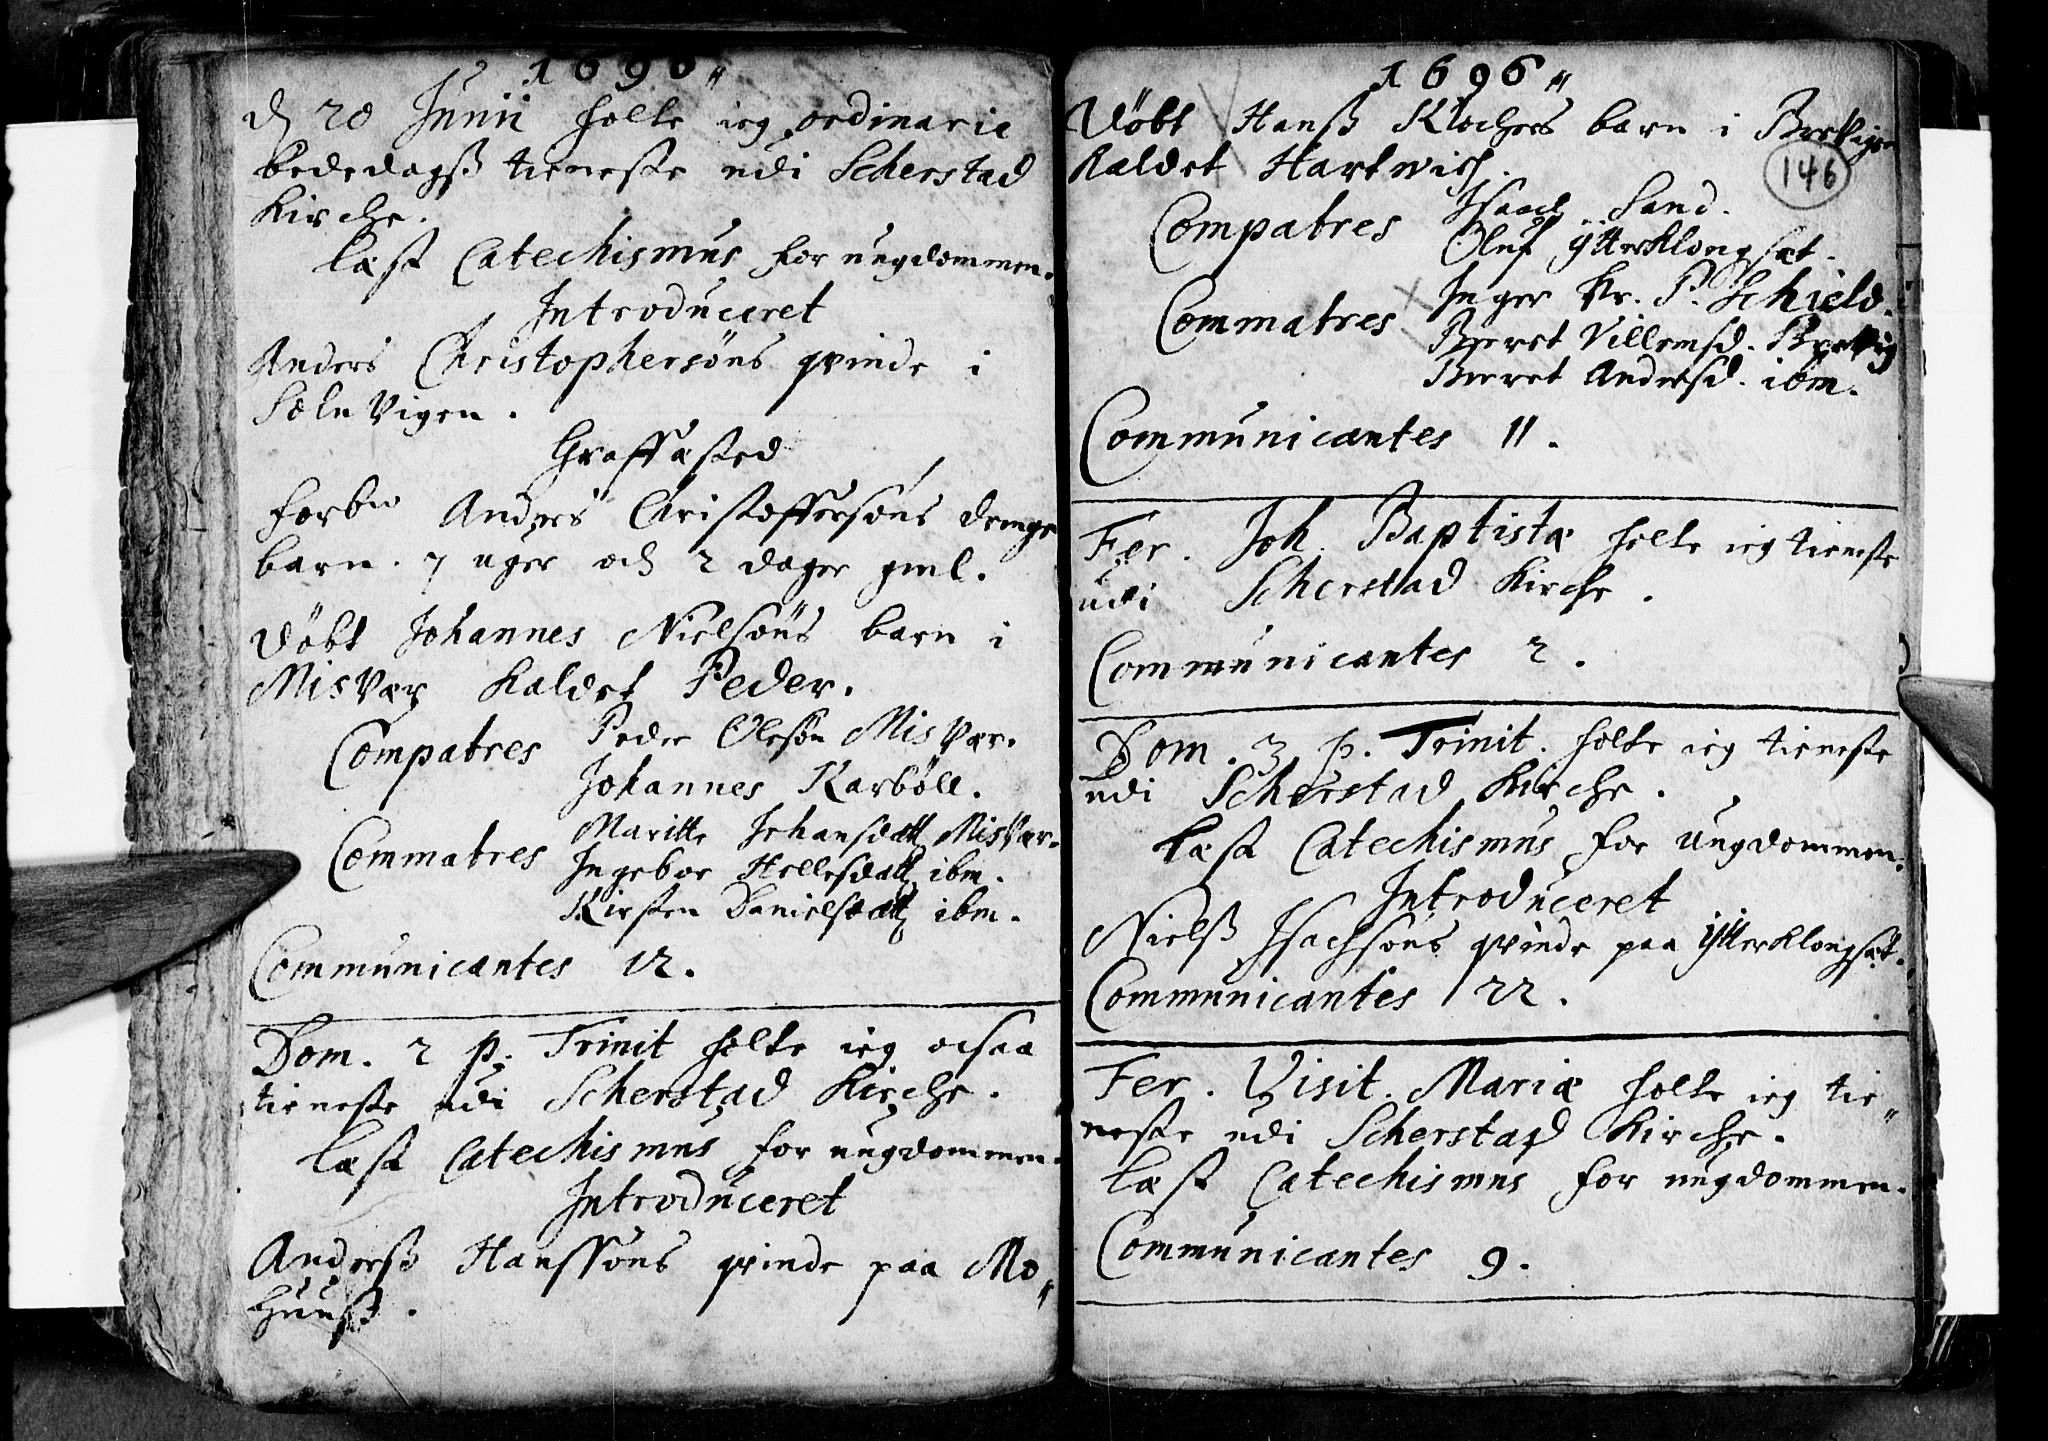 1696
d 20 Junii holte ieg ordinarie
bededagß tieneste udi Scherstad
Kirche.
læst Catechismus for ungdommen.
Introduceret
Anders Christophersöns qvinde i
Solu Vigen.
Graffæsted
Anders Christoffersöns drenge
barn. 7 uger och 2 dager gml.
Döbt Johannes Nielsöns barn i
MisVær Kaldet Peder.
Compatres Peder Olesön MisVær.
Johannes Karböll.
Commatres Maritte Johansdatt MisVær.
Ingebor Hellesdatt ibm.
Kirsten Danielsdatt ibm.
Communicantes 12.
Dom. 2 p. Trinit holte ieg ocsaa
tieneste udi Scherstad Kirche.
læst Catechismus for ungdommen.
Introduceret
Anderß Hanssöns qvinde paa Mo-
huuß.
1696
Döbt Hanß Klochers barn i BretVigen
Kaldet Hartwich.
146
Compatres Isaach Sand.
Oluf YtterKlongset.
Commatres Inger Hr. P. Schield.
Beret Villemsd. BretVig
Beret Andersd. ibm.
Communicantes 11.
Fer. Joh. Baptistæ holte ieg tieneste
udi Scherstad Kirche.
Communicantes 2.
Dom. 3 p. Trinit. holte ieg tieneste
udi Scherstad Kirche.
læst Catechismus for Ungdommen.
Introduceret
Nielß Isachsöns qvinde paa YtterKlongset.
Communicantes 22.
Fer. Visit. Mariæ holte ieg tie-
neste udi Scherstad Kirche.
læst Catechismus for ungdommen.
Communicantes 9.